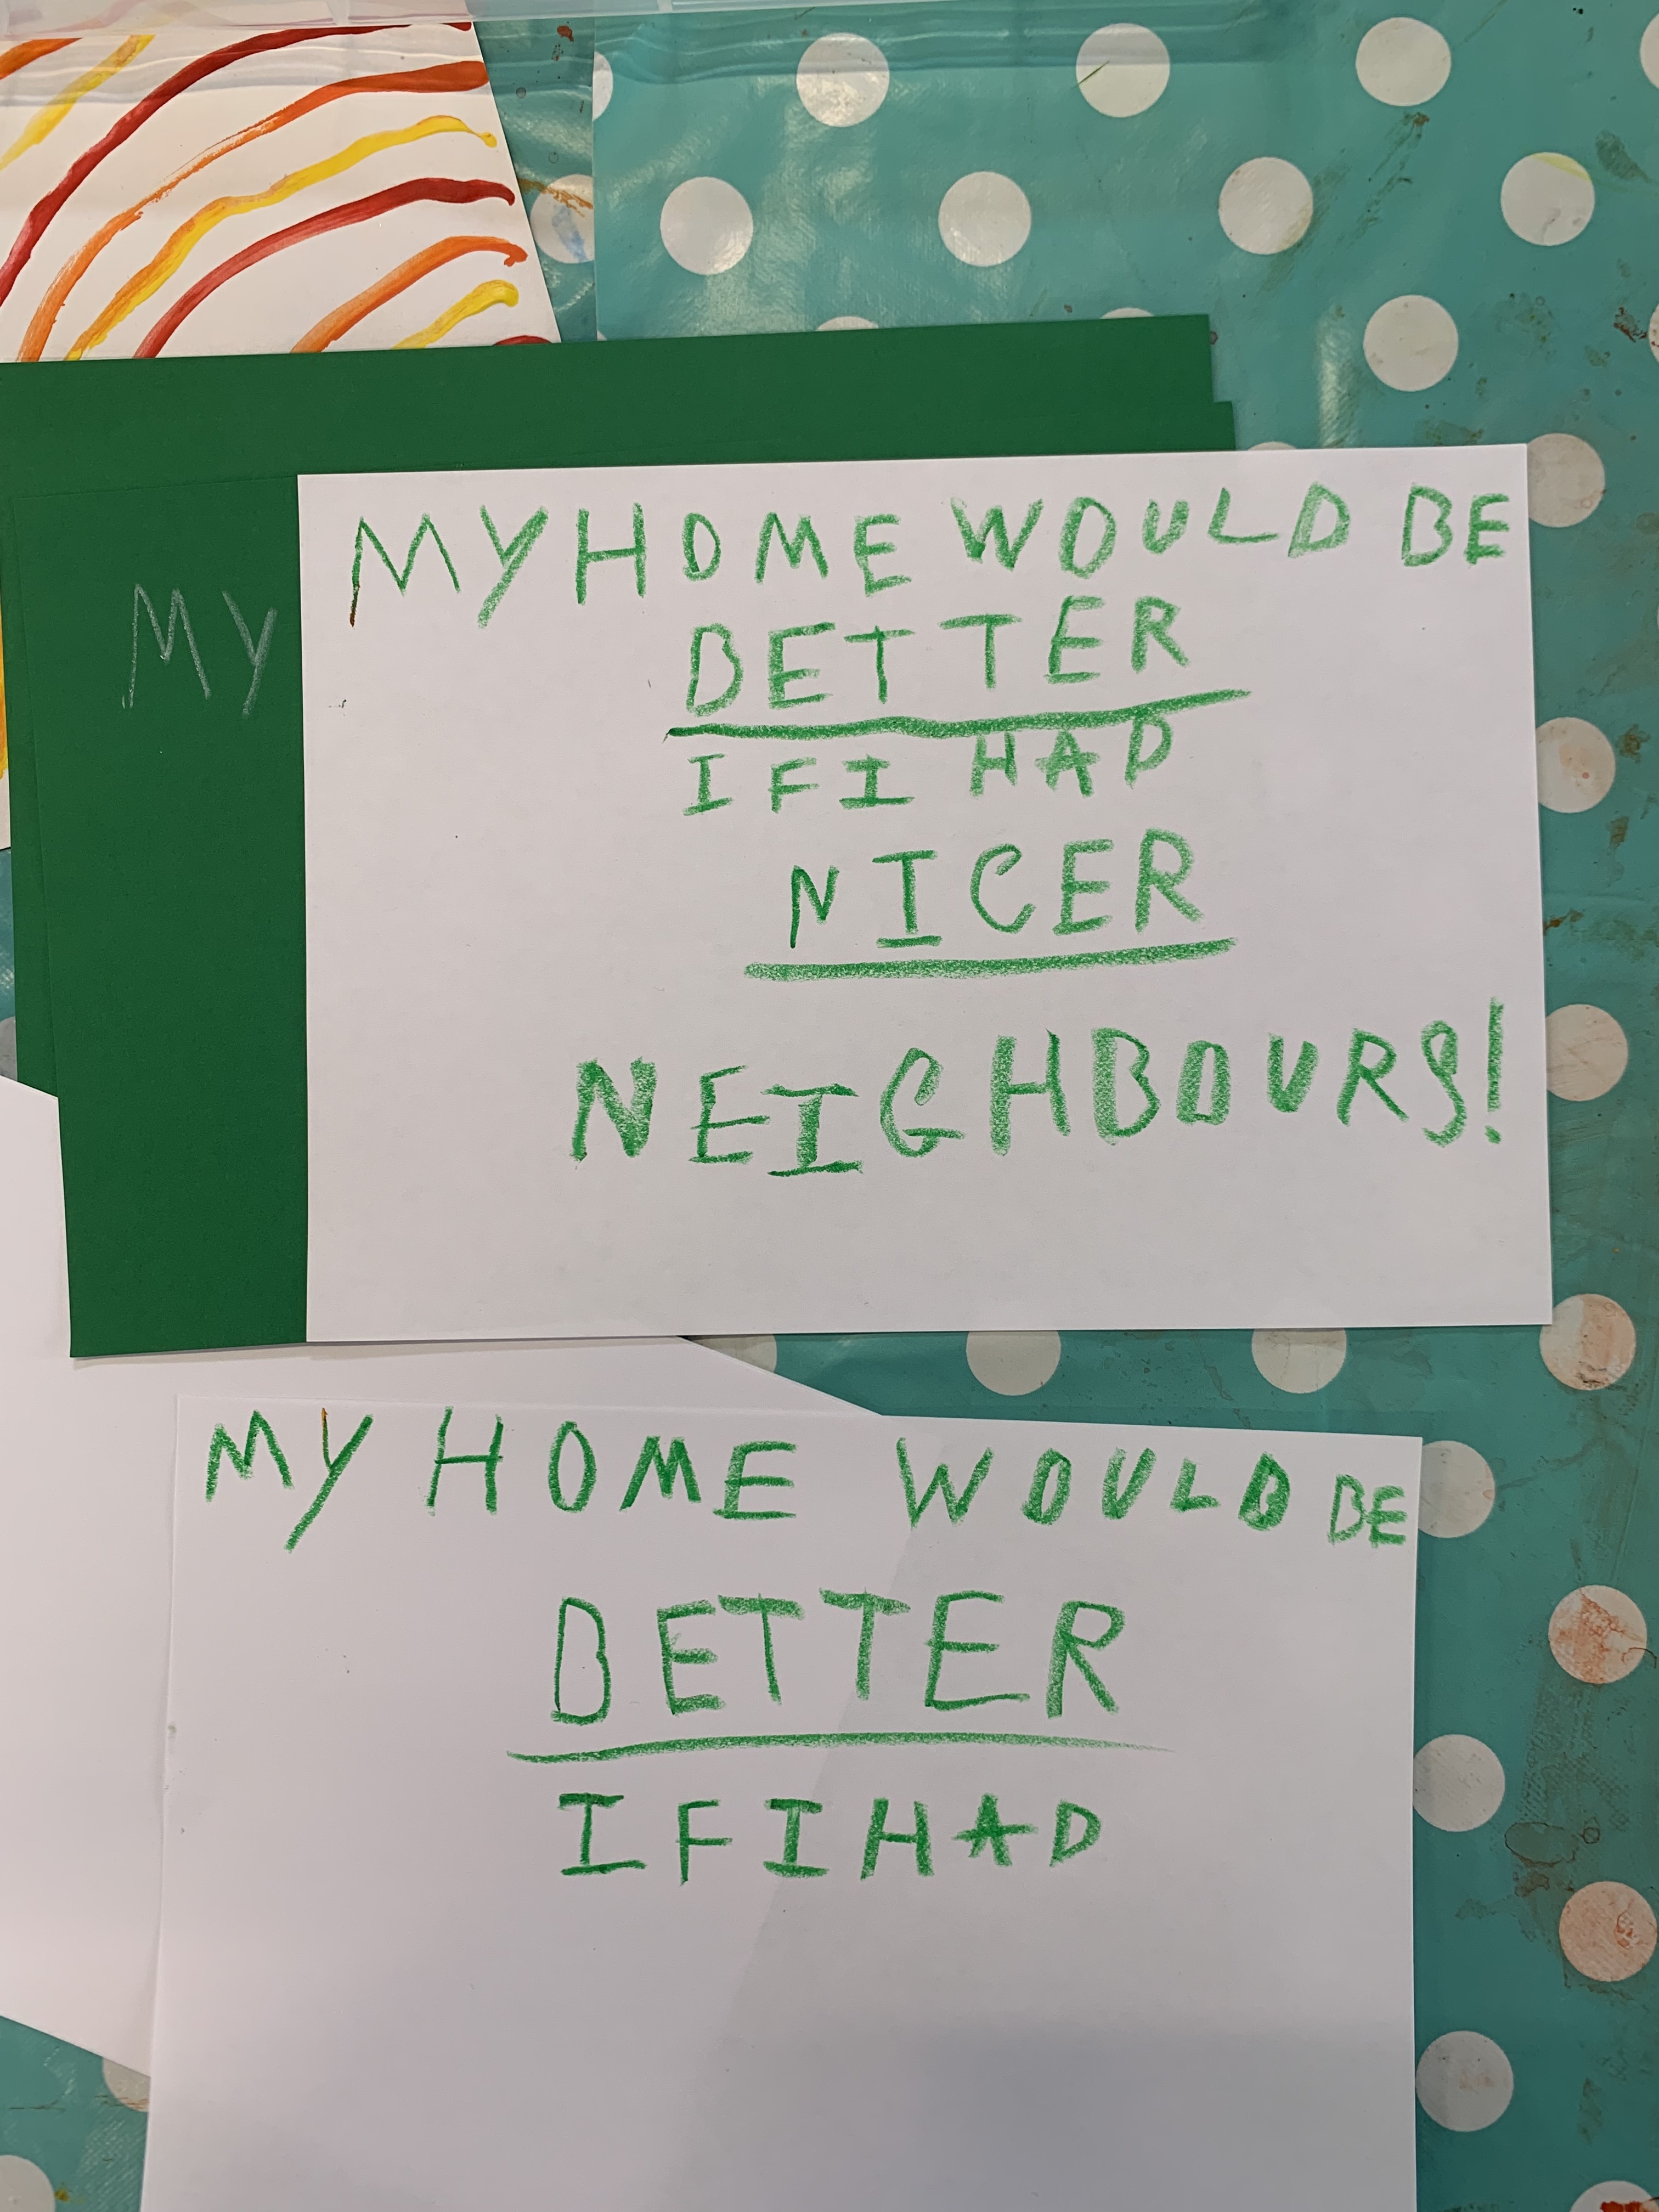 MY
MY HOME WOULD BE
BETTER
IF I HAD
NICER
NEIGHBOURS!
MY HOME WOULD BE
BETTER
IF I HAD